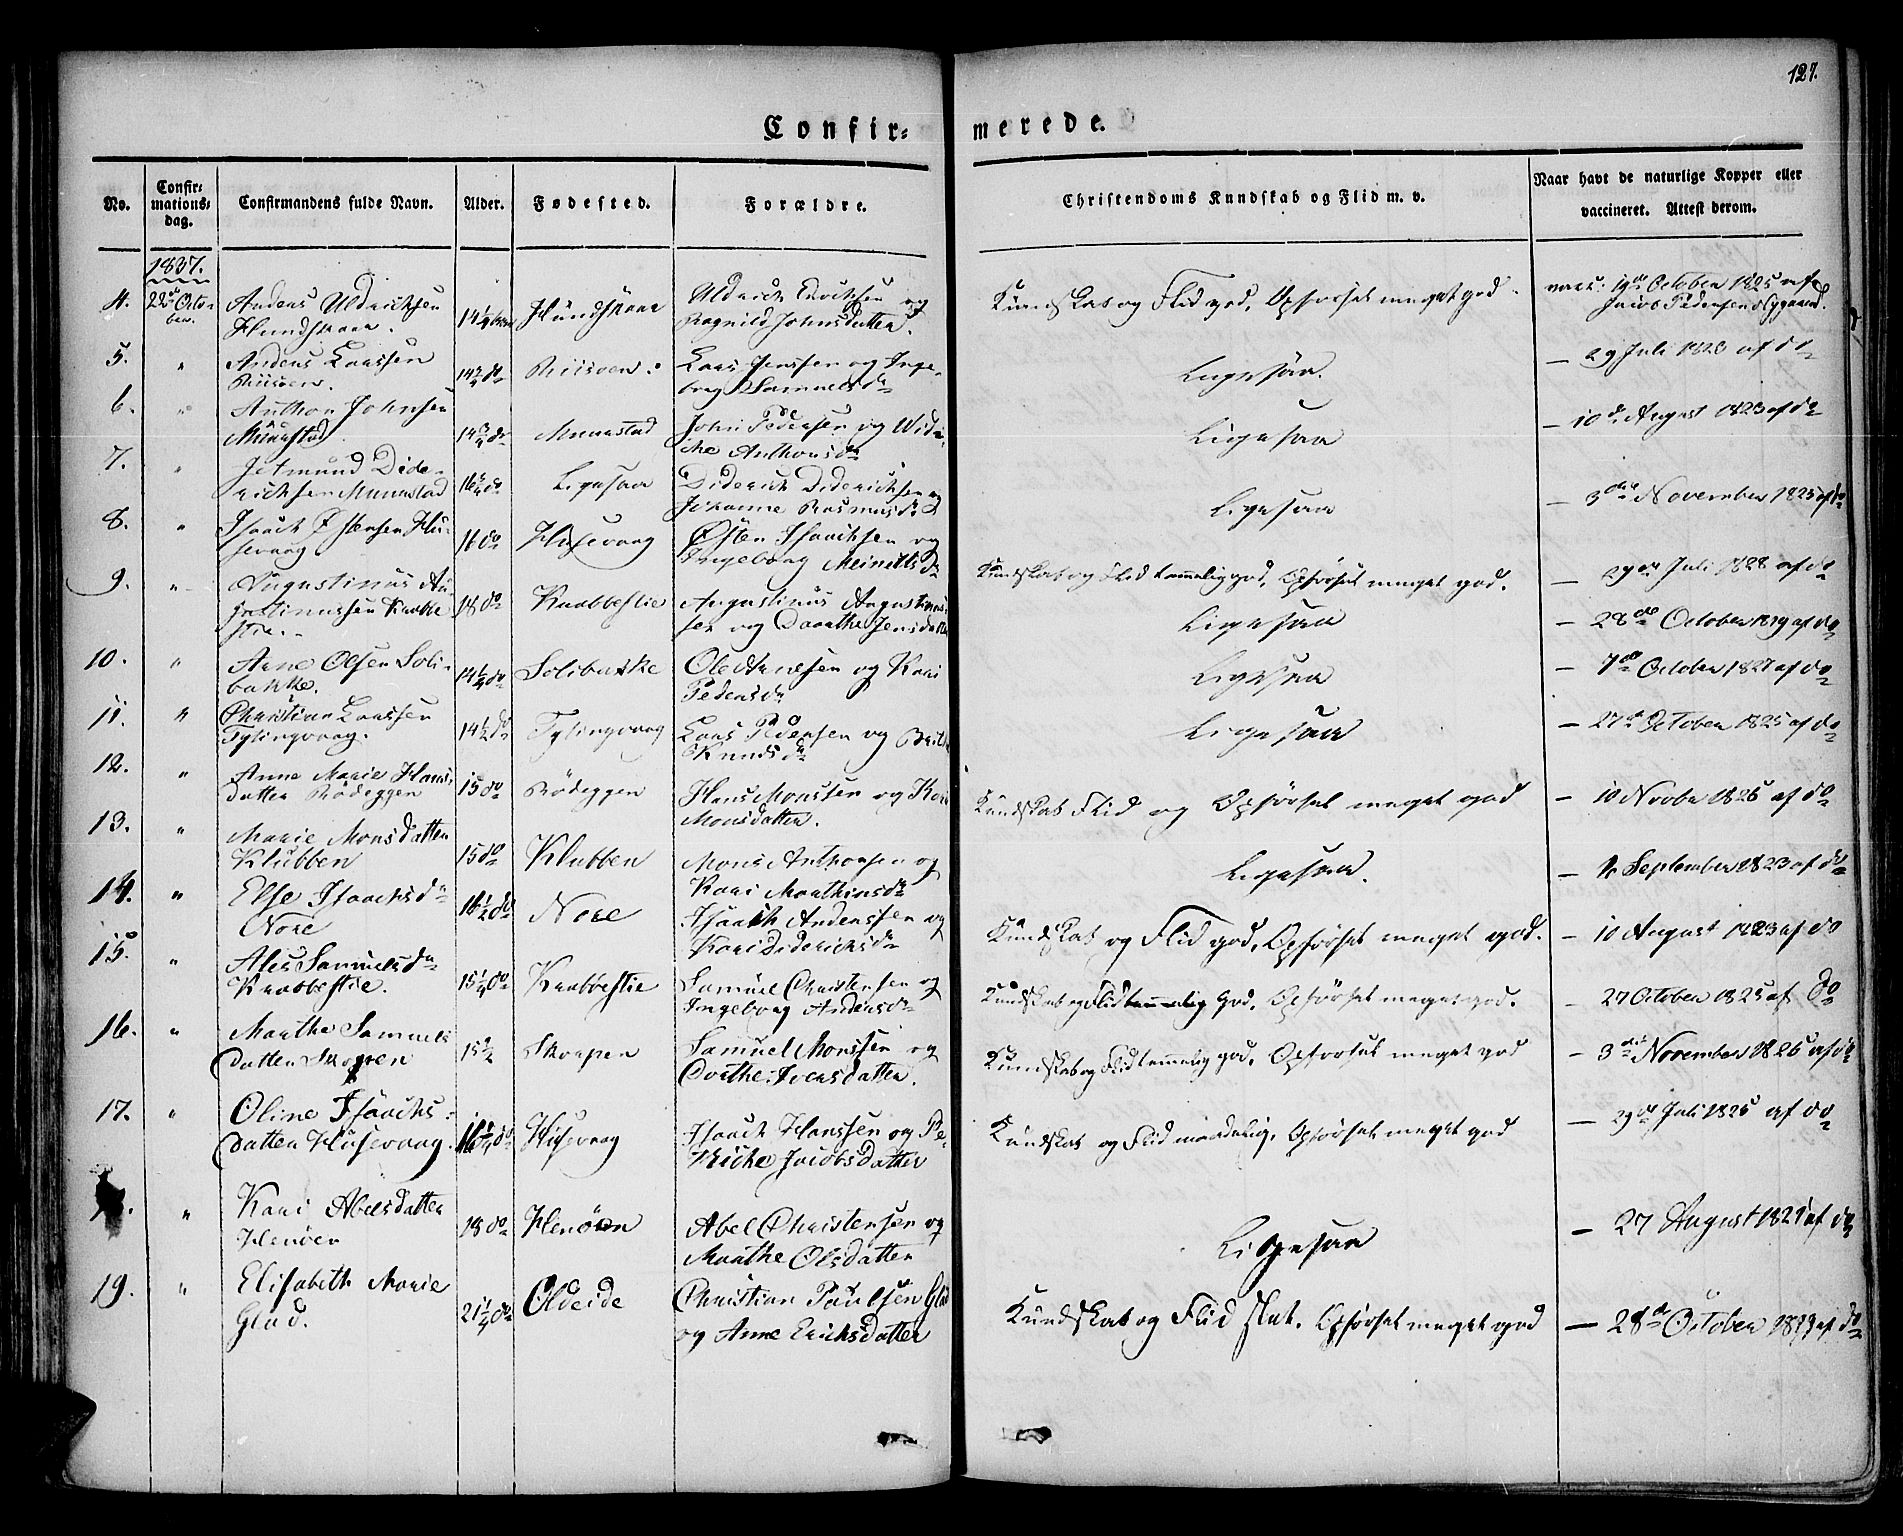 127.
Confir= merede.
No.
Confir=
mations=
dag.
Confirmandens fulde Navn.
Alder.
Fødested.
Forældre.
Christendoms Kundskab og Flid m. v.
Naar havt de naturlige Kopper eller
vaccineret. Attest derom.
1837.
4. 22de Octo-
ber.
Anders Uldrichsen
Hundskaar.
14 1/4
Hundskaar
Uldrich Erichsen og
Ragnild Johnsdatter.
Kundskab og Flid god, Opførsel meget god.
vacc. 19de October 1825 af
Jacob Pedersen
5. "
Anders Larssen
Riisøen.
14 3/4 do
Riisøen.
Lars Jenssen og Inge-
borg Samuelsdr
Ligesaa.
— 29 Juli 1823 af do
6. "
Anthon Johnsen
Munstad
14 3/4 do
Munstad
John Pedersen og
Anthonsdr
Ligesaa
— 10de August 1823 af do
7. "
Jetmund Dide-
richsen Munstad
do
Ligesaa
Diderich Diderichsen og
Johanne Rasmusdr
Ligesaa
— 3die November 1825 af do
8. "
Isaach Østensen Hu-
sevaag
do
Husevaag
Østen Isaachsen og
Ingeborg Meinertsdr
Kundskab og Flid temmelig god, Opførsel meget god.
— 29de Juli 1828 af do
9. "
Augustinus Au-
gustinussen Krabbe
stie.
18 do
Krabbestie
Augustinus Augustinus
sen og Dorothe Jensdatter
Ligesaa
— 28de October 1819 af do
10. "
Arne Olsen Soli-
bakke.
14 1/4 do
Solibakke
Ole Arnesen og Kari
Pedersdr
Ligesaa
— 7de October 1827 af do
11. "
Christian Larssen
Tytingvaag.
14 1/2 do
Tytingvaag
Lars Pedersen og Brit
Knudsdr
Ligesaa
— 27de October 1825 af do
12. "
Anne Marie Hans-
datter Rødeggen
15 do
Rødeggen
Hans Monssen og Kari
Monsdatter.
Kundskab Flid og Opførsel meget god
— 10 Novbr 1825 af do
13. "
Marie Monsdatter
Klubben
15 do
Klubben
Mons Anthonsen og
Kari Marthinsdr
Ligesaa.
— September 1823 af do
14. "
Else Isaachsdr
Nore
16 1/2 do
Nore
Isaach Anderssen og
Kari Diderichsdr
Kundskab og Flid god, Opførsel meget god.
— 10 August 1823 af do
15. "
Ales Samuelsdr
Krabbestie.
15 1/4 do
Krabbestie
Samuel Christensen og
Ingeborg Andersdr
Kundskab og Flid temmelig god, Opførsel meget god.
— 27 October 1825 af do
16. "
Marthe Samuels
datter Skorpen
15 1/2
Skorpen
Samuel Monssen og
Dorthe Iversdatter.
Kundskab og Flid temmelig god, Opførsel meget god
— 3die November 1825 af do
17. "
Oline Isaachs-
datter Husevaag.
do
Husevaag
Isaach Hanssen og Be-
Jacobsdatter
Kundskab og Flid maadelig, Opførsel meget god
— 29de Juli 1825 af do
"
Kari Abelsdatter
Henøen
18 do
Henøen
Abel Christensen og
Marthe Olsdatter
Ligesaa
— 27 August 1821 af do
19. "
Elisabeth Marie
Glad.
21 1/4 do
Oldeide
Christian Paulsen Glad
og Anne Erichsdatter
Kundskab og Flid slet. Opførsel meget god
— 28de October 1819 af do